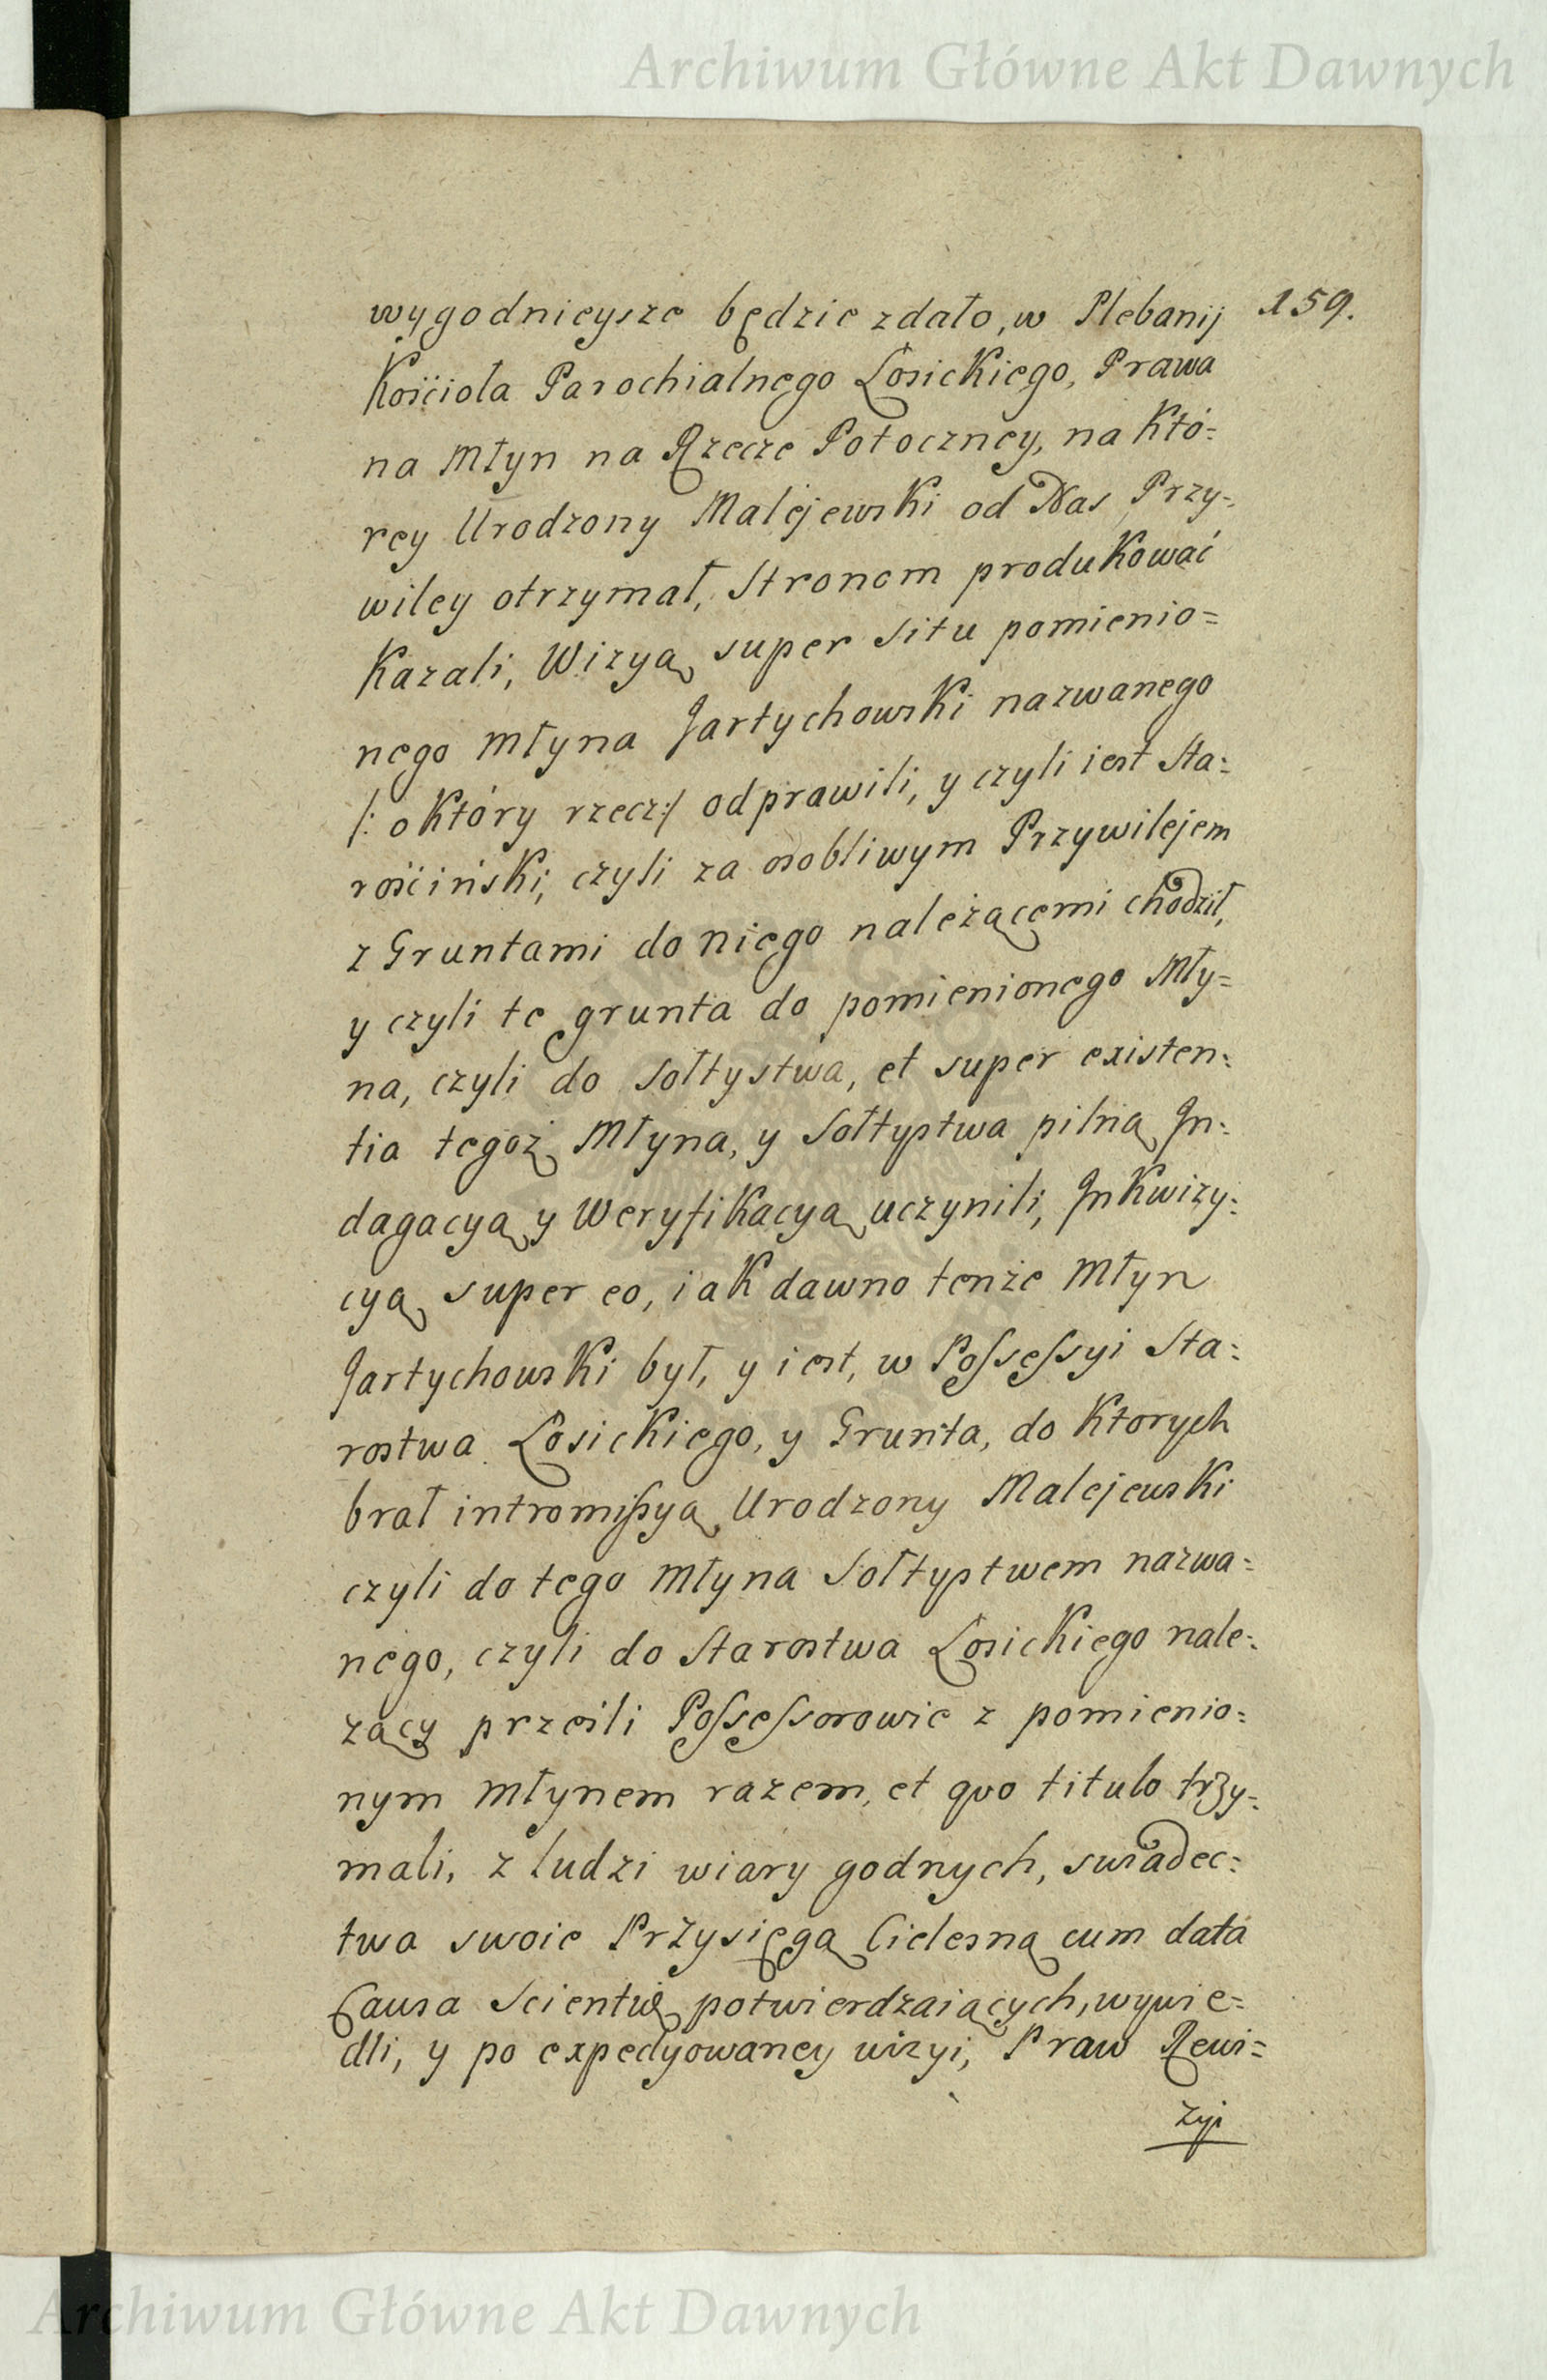 Archiwum Główne Akt Dawnych
wygodnieysze będzie zdało, w Plebanij 159.
Kościoła Parochialnego Łosickiego, Prawa
na Młyn na Rzecze Potoczney, na Któ=
rey Urodzony Malejewski od Nas Przy=
wiley otrzymał, Stronom produkować
Kazali, Wizyą super Situ pomienio=
nego Młyna Jartychowski nazwanego
/: o Który rzecz :/ odprawili, y czyli iest Sta=
rościński, czyli za osobliwym Przywilejem
z Gruntami do niego należącemi chodził,
y czyli te grunta do pomienionego Mły=
na, czyli do Sołtystwa, et super existen=
tia tegoż Młyna, y Sołtystwa pilną In=
dagacyą y Weryfikacyą uczynili, Inkwizy=
cyą super eo, iak dawno tenże Młyn
Jartychowski był, y iest, w Possessyi Sta=
rostwa Łosickiego, y Grunta, do Ktorych
brał intromissyą Urodzony Malejewski
czyli do tego Młyna Sołtystwem nazwa=
nego, czyli do Starostwa Łosickiego nale=
zący przeszli Possessorowie z pomienio=
nym Młynem razem, et quo titulo trzy=
mali, z ludzi wiary godnych, swiadec=
twa swoie Przysięgą Cielesną cum data
Causa Scientiæ potwierdzaiących, wywie=
dli, y po expedyowaney wizyi, Praw Rewi=
zyi
Archiwum Główne Akt Dawnych